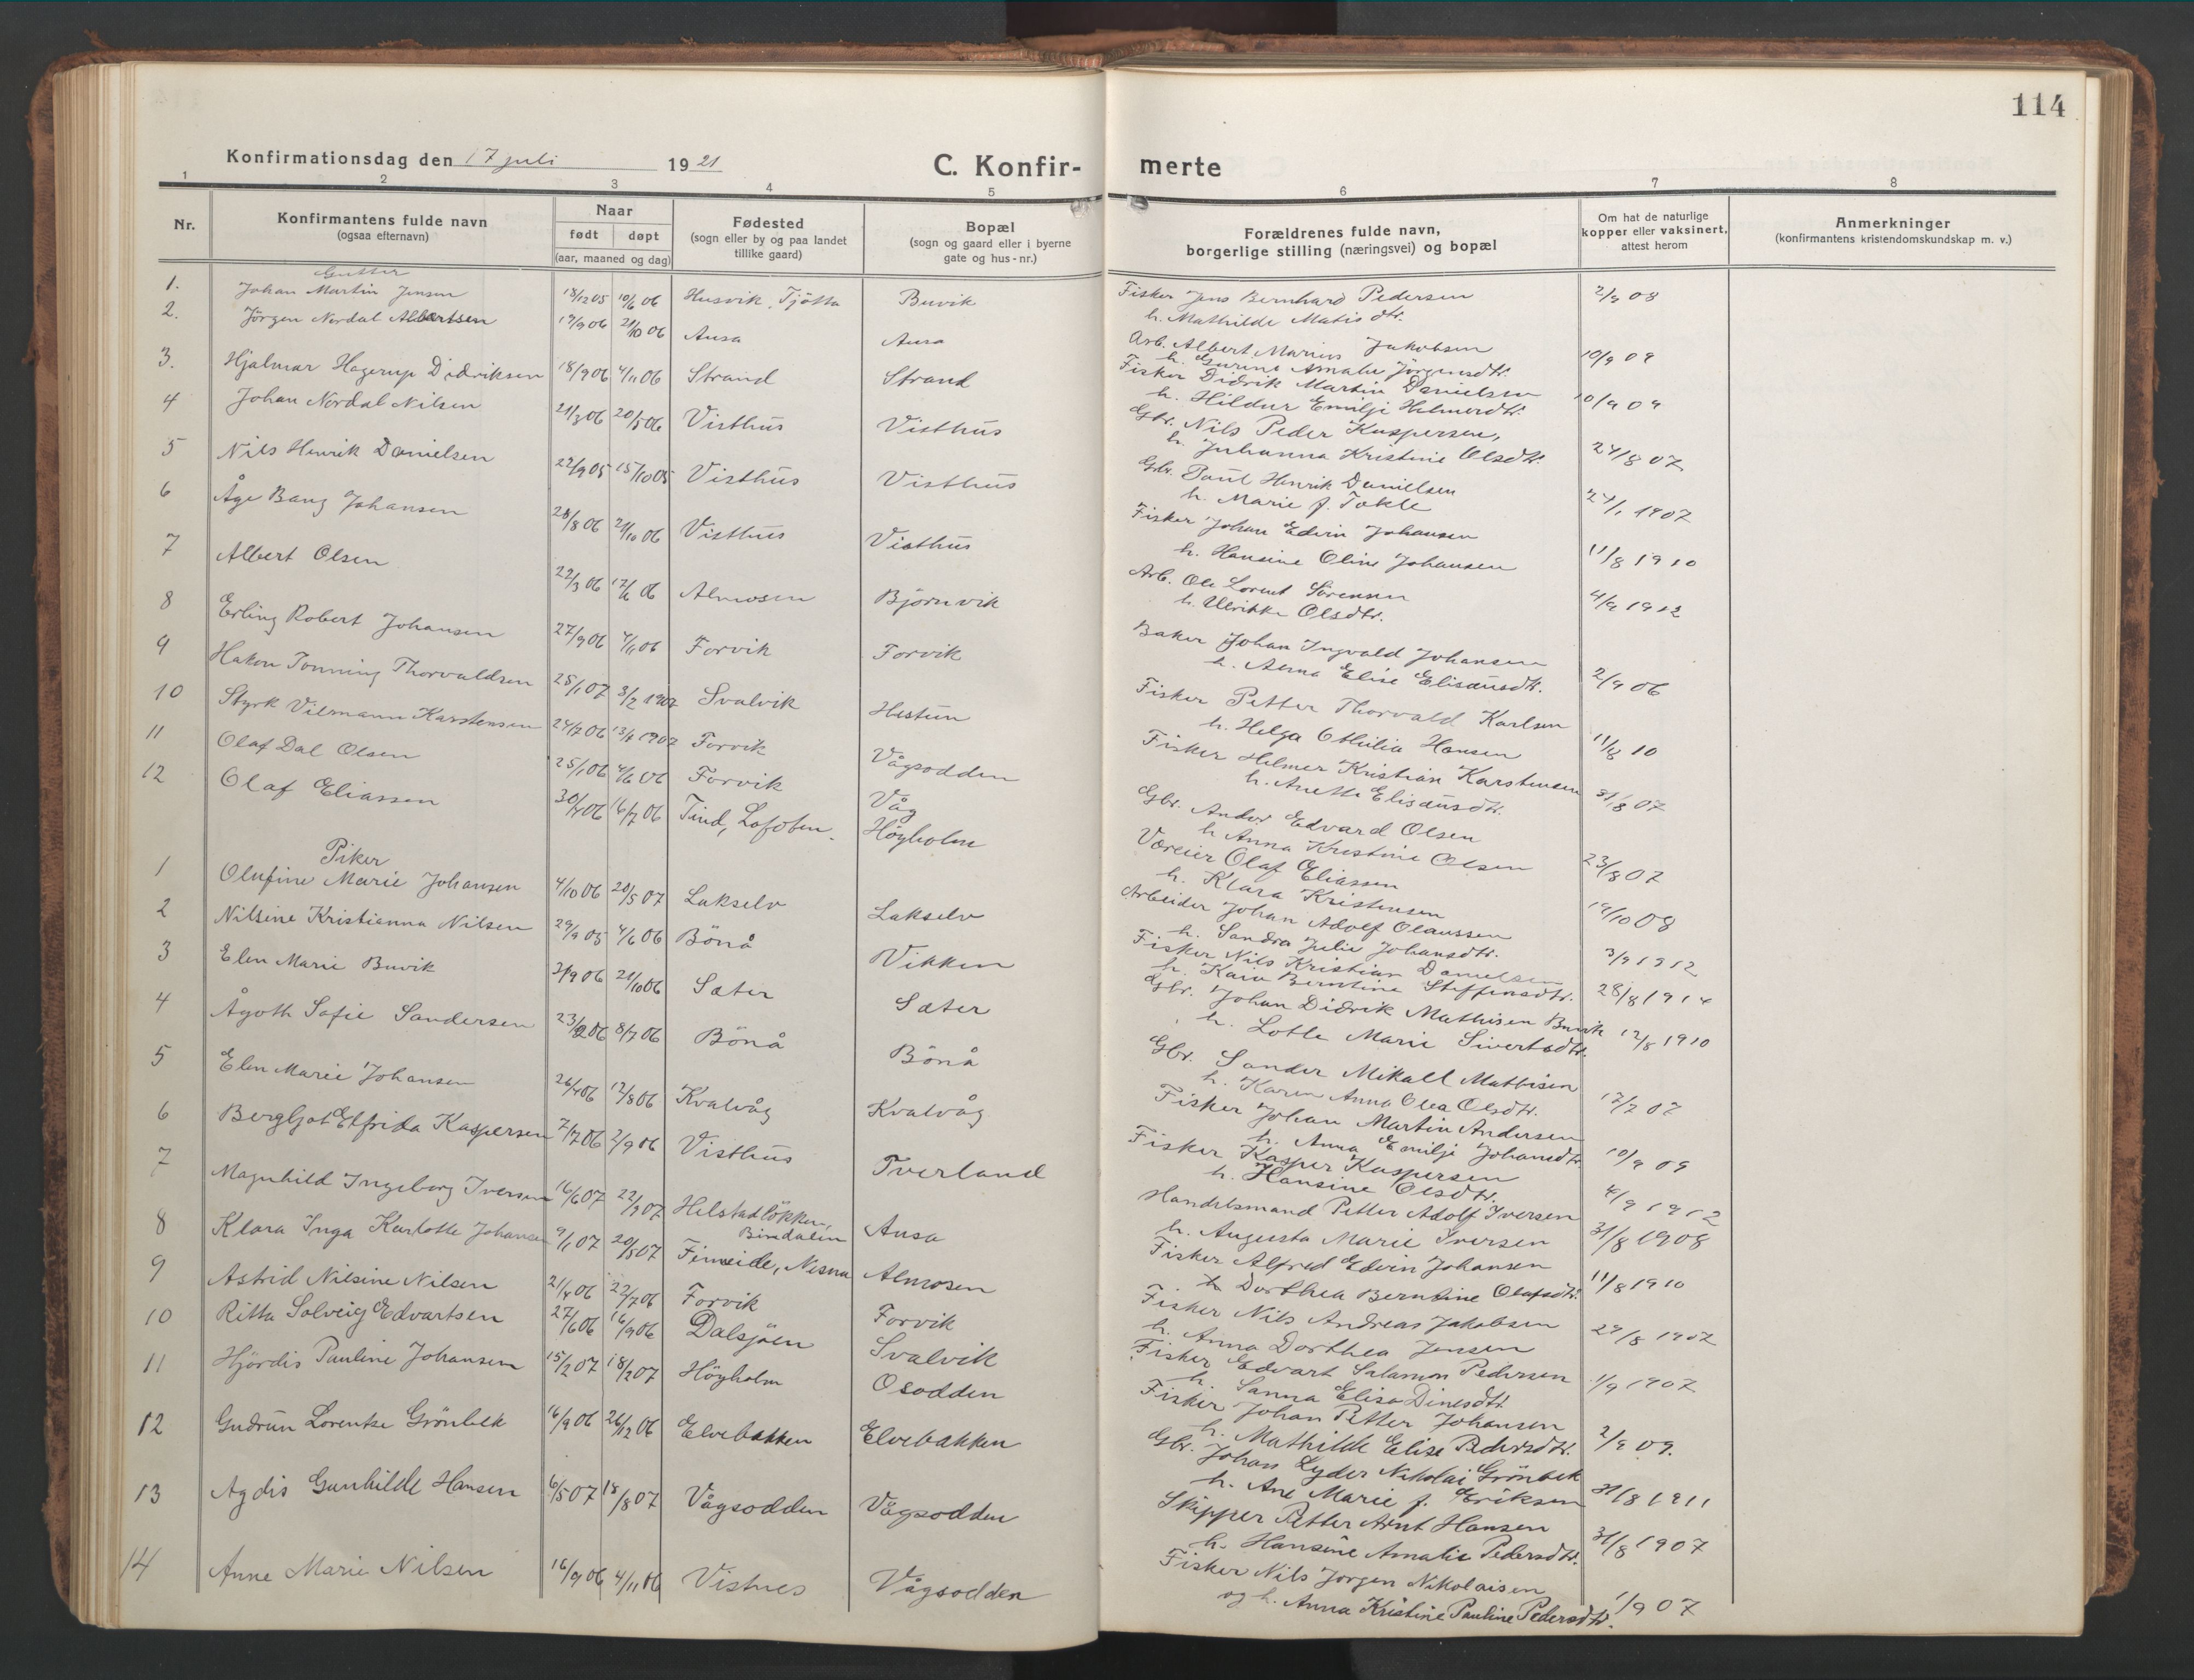 114
Konfirmationsdag den 17 juli 1921
C. Konfir-
merte
1 2 3 4 5 6 7 8
Nr.
Konfirmantens fulde navn
(ogsaa efternavn)
Naar
født døpt
(aar, maaned og dag)
Fødested
(sogn eller by og paa landet
tillike gaard)
Bopæl
(sogn og gaard eller i byerne
gate og hus-nr.)
Forældrenes fulde navn,
borgerlige stilling (næringsvei) og bopæl
Om hat de naturlige
kopper eller vaksinert,
attest herom
Anmerkninger
(konfirmantens kristendomskundskap m. v.)
Gutter
1. Johan Martin Jensen 18/12 05 10/6 06 Husvik, Tjötta Buvik
Fisker Jens Bernhard Pedersen 2/9 08
h. Mathilde Matisdtr.
2. Jörgen Nordal Albertsen 19/9 06 21/10 06 Ausa Ausa
Arb. Albert Marius Jakobsen 10/9 09
h. Gurine Amalie Jörgensdtr.
3. Hjalmar Hagerup Didriksen 18/9 06 4/11 06 Strand Strand
Fisker Didrik Martin Danielsen 10/9 09
h. Hildur Emilje Helmerdtr.
4 Johan Nordal Nilsen 21/3 06 20/5 06 Visthus Visthus
Gbr. Nils Peder Kaspersen, 24/8 07
h. Johanna Kristine Olsdtr.
5 Nils Henrik Danielsen 22/9 05 15/10 05 Visthus Visthus
Gbr. Paul Henrik Danielsen 24/1 1907
h. Marie f. Tokle
6 Åge Bang Johansen 28/8 06 21/10 06 Visthus Visthus
Fisker Johan Edvin Johansen 11/8 1910
h. Hansine Oline Johansen
7 Albert Olsen 22/3 06 17/6 06 Almosen Björnvik
Arb. Ole Lorent Sörensen 4/9 1912
h. Ulrikke Olsdtr.
8 Erling Robert Johansen 27/9 06 4/11 06 Forvik Forvik
Baker Johan Ingvald Johansen 2/9 06
h. Anna Elise Elisæusdtr.
9 Hakon Tonning Thorvaldsen 25/1 07 3/2 1907 Svalvik Hestun
Fisker Petter Thorvald Karlsen 11/8 10
h. Helga Othilia Hansen
10 Styrk Vilmann Karstensen 24/7 06 Forvik Vågsodden
Fisker Helmer Kristian Karstensen 31/8 07
h. Anette Elisæusdtr.
11 Olaf Dal Olsen 25/1 06 4/6 06 Forvik Våg
Gbr. Andor Edvard Olsen 23/8 07
h Anna Kristine Olsen
12 Olaf Eliassen 30/4 06 16/7 06 Tind, Lofoten. Höyholm
Væreier Olaf Eliassen 19/10 08
h. Klara Kristensen
Piker
1 Olufine Marie Johansen 4/10 06 20/5 07 Lakselv Lakselv
Arbeider Johan Adolf Olaussen 3/9 1912
h. Sandra Julie Johansdtr.
2 Nilsine Kristianna Nilsen 29/9 05 4/6 06 Bönå Vikken
Fisker Nils Kristian Danielsen 28/8 1914
h. Kaia Berntine Steffensdtr.
3 Elen Marie Buvik 3/9 06 21/10 06 Sæter Sæter
Gbr. Johan Didrik Mathisen Buvik 12/8 1910
h. Lotte Marie Sivertsdtr.
4 Ågoth Sofie Sandersen 23/2 06 8/7 06 Bönå Bönå
Gbr. Sander Mikall Mathisen 17/7 07
h. Karen Anna Olea Olsdtr.
5 Elen Marie Johansen 26/4 06 12/8 06 Kvalvåg Kvalvåg
Fisker Johan Martin Andersen 10/9 09
h. Anna Emilje Johansdtr.
6 Bergljot Elfrida Kaspersen 7/7 06 2/9 06 Visthus Tverland
Fisker Kasper Kaspersen 4/9 1912
h. Hansine Olsdtr.
7 Magnhild Ingeborg Iversen 16/6 07 22/9 07 Helstadlökken, Bindalen Ausa
Handelsmand Petter Adolf Iversen 31/8 1908
h. Augusta Marie Iversen
8 Klara Inga Karlotte Johansen 9/1 07 20/5 07 Finneide, Nesna Almosen
Fisker Alfred Edvin Johansen 11/8 1910
h Dorthea Berntine Olafsdtr.
9 Astrid Nilsine Nilsen 21/4 06 22/7 06 Forvik Forvik
Fisker Nils Andreas Jakobsen 29/8 1907
h. Anna Dorthea Jensen
10 Ritta Solveig Edvartsen 27/6 06 16/9 06 Dalsjöen Svalvik
Fisker Edvart Salamon Pedersen 1/9 1907
h. Sanna Elisa Dinesdtr
11 Hjördis Pauline Johansen 15/2 07 18/2 07 Höyholm Osodden
Fisker Johan Petter Johansen 2/9 09.
h. Mathilde Elise Pedersdtr.
12 Gudrun Lorentze Grönbek 16/9 06 26/12 06 Elvebakken Elvebakken
Gbr. Johan Lyder Nikolai Grönbek 31/8 1911
h. Ane Marie f. Eriksen
13 Agdis Gunhilde Hansen 6/5 07 18/8 07 Vågsodden Vågsodden
Skipper Petter Arnt Hansen 31/8 1907
h. Hansine Amalie Pedersdtr.
14 Anne Marie Nilsen 16/9 06 4/11 06 Vistnes Vågsodden
Fisker Nils Jorgen Nikolaisen 1/9 07
og h. Anna Kristine Pauline Pedersdtr.